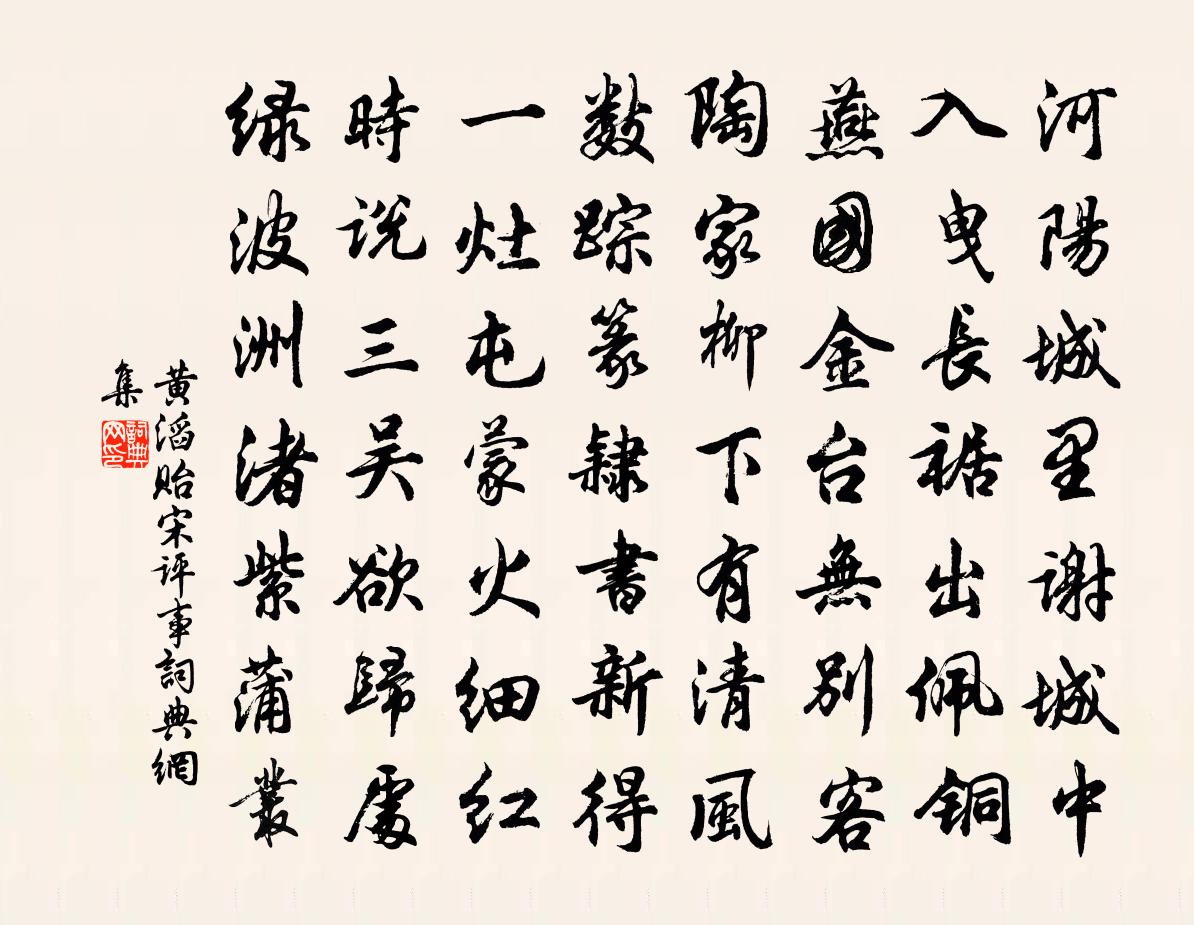 河陽城里谢城中
入曳長裾出佩铜
燕國金台無別客
陶家柳下有清風
数踪篆隸書新得
一灶屯蒙火细红
時说三吴欲歸處
绿波洲渚紫蒲叢
黄滔贻宋评事詞典網
集
詞典
网印